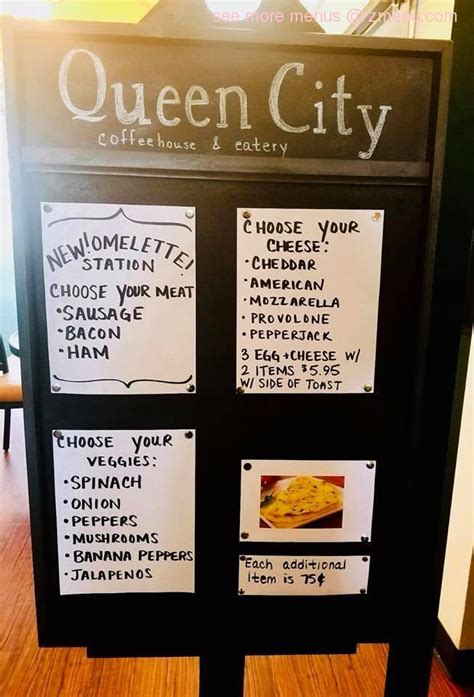 see more menus @ zmenu.com
Queen City
coffeehouse & eatery
NEW! OMELETTE!
STATION
CHOOSE YOUR MEAT
• SAUSAGE
• BACON
• HAM
CHOOSE YOUR
CHEESE:
• CHEDDAR
• AMERICAN
• MOZZARELLA
• PROVOLONE
• PEPPERJACK
3 EGG + CHEESE W/
2 ITEMS $5.95
W/ SIDE OF TOAST
CHOOSE YOUR
VEGGIES:
• SPINACH
• ONION
• PEPPERS
• MUSHROOMS
• BANANA PEPPERS
• JALAPENOS
Each additional
Item is 75¢